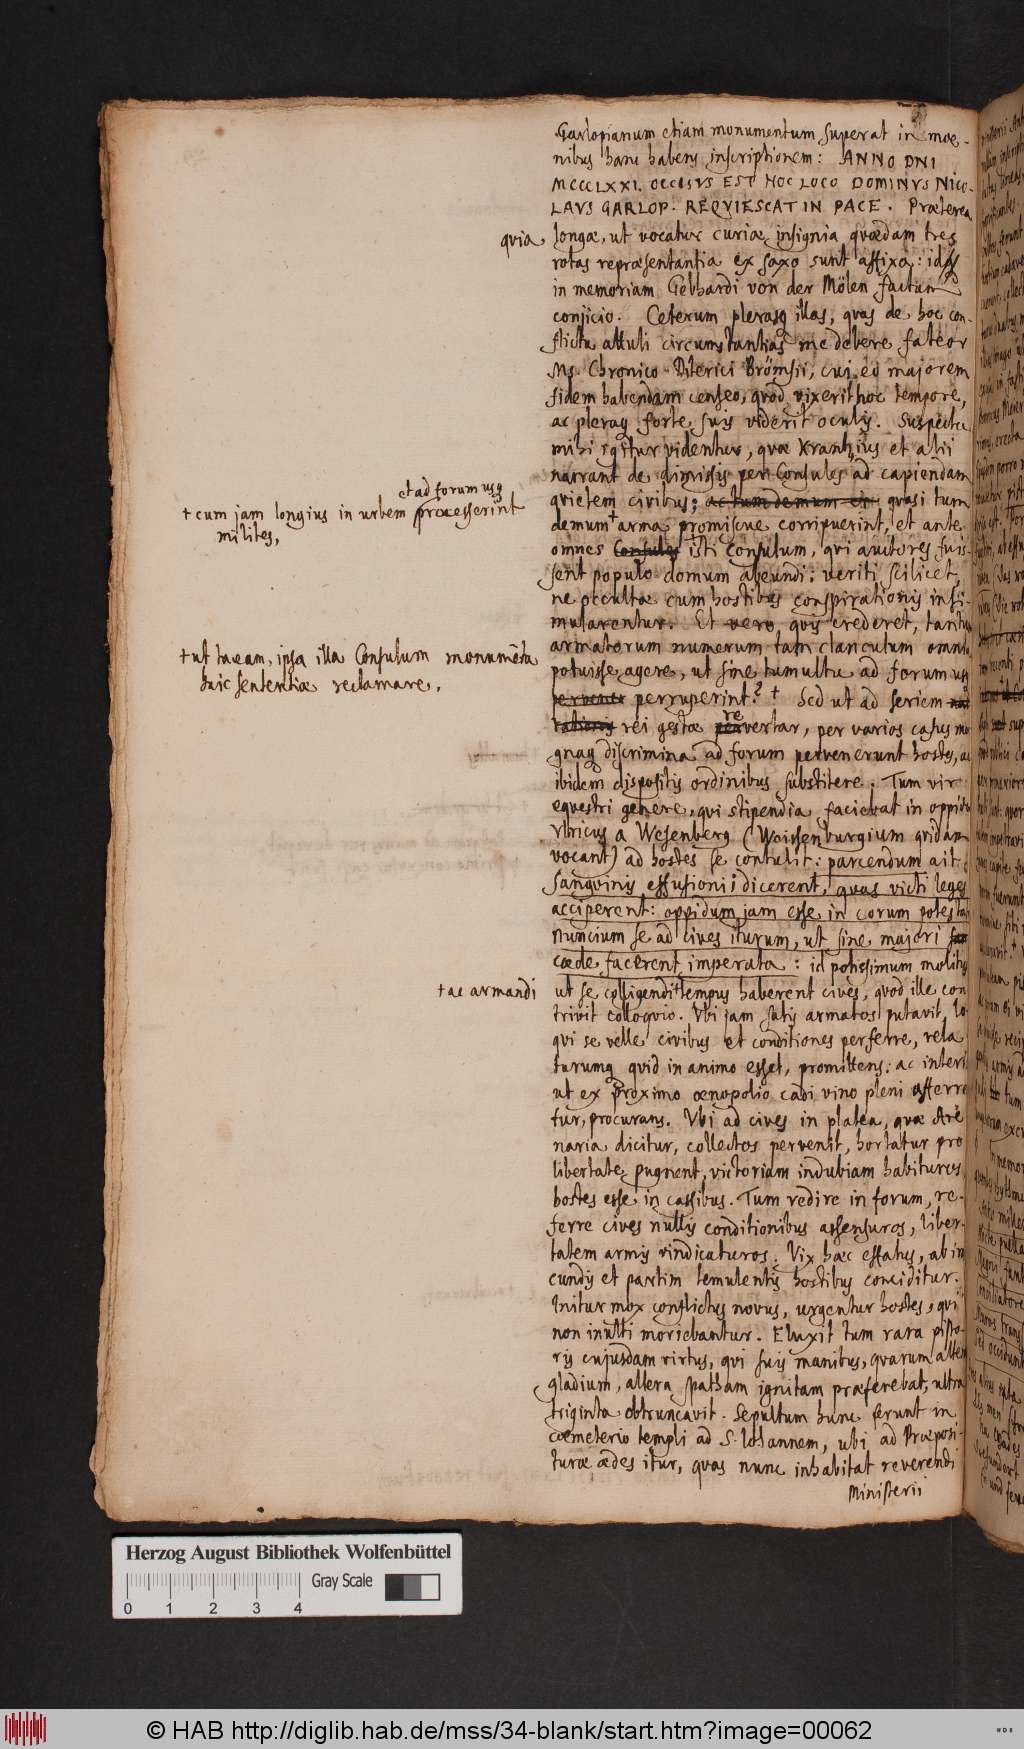 Garlopianum etiam monumentum superat in moe-
nibus hanc habens inscriptionem: ANNO DNI
MCCCLXXI. OCCISVS EST HOC LOCO DOMINVS NICO-
LAVS GARLOP. REQVIESCAT IN PACE. Præterea
qvia
longæ, ut vocatur curiæ insignia qvædam tres
rotas repræsentantia ex saxo sunt affixa: idq;
in memoriam Gebhardi von der Mölen factum
conjicio. Ceterum plerasq; illas, qvas de hoc con-
flictu attuli circumstantias me debere fateor
Ms. Chronico Diterici Brömsii, cui eò majorem
fidem habendam censeo, qvod vixerit hoc tempore,
ac pleraq; forte suis viderit oculis. Suspecta
mihi igitur videntur, qvæ Krantzius et alii
narrant de dimissis per Consules ad capiendam
qvietem civibus; ac tum demum ei qvasi tum
+ cum jam longius in urbem et ad forum usq; processerint
milites,
demum + arma promiscue corripuerint, et ante
omnes Consules isti Consulum, qvi auctores fuis-
sent populo domum abeundi: veriti scilicet,
ne occultæ cum hostibus conspirationis insi-
mularentur. Et vero qvis crederet, tantum
armatorum numerum tam clanculum omnia
potuisse agere, ut sine tumultu ad forum usq;
+ ut taceam, ipsa illa Consulum monumenta
huic sententiæ reclamare.
pervener perruperint? + Sed ut ad seriem
rei gestæ revertar, per varios casus ma-
gnaq; discrimina ad forum pervenerunt hostes, ac
ibidem dispositis ordinibus substitere. Tum vir
eqvestri genere, qvi stipendia faciebat in oppido
Vlricus a Wesenberg (Weissenburgium qvidam
vocant) ad hostes se contulit: parcendum ait
sangvinis effusioni: dicerent, qvas victi leges
acciperent: oppidum jam esse in eorum potestate
nuncium se ad cives iturum, ut sine majori
cæde facerent imperata: id potissimum molitus
+ ac armandi
ut se colligendi + tempus haberent cives, qvod ille con-
trivit colloqvio. Vbi jam satis armatos putavit, lo-
qvi se velle civibus et conditiones perferre, rela-
turumq; qvid in animo esset, promittens: ac interim
ut ex proximo œnopolio cadi vino pleni afferren-
tur, procurans. Vbi ad cives in platea, qvæ Are-
naria dicitur, collectos pervenit, hortatur pro
libertate pugnent, victoriam indubiam habituros
hostes esse in cassibus. Tum redire in forum, re-
ferre cives nullis conditionibus assensuros, liber-
tatem armis vindicaturos. Vix hæc effatus, ab in-
cundis et partim temulentis hostibus conciditur.
Initur mox conflictus novus, urgentur hostes, qvi
non inulti moriebantur. Eluxit tum rara pisto-
ris cujusdam virtus, qvi suis manibus, qvarum altera
gladium, altera spatham ignitam præferebat, ultra
triginta obtruncavit. Sepultum hunc ferunt in
cœmeterio templi ad S. Johannem, ubi ad Præposi-
turæ ædes itur, qvas nunc inhabitat reverendi
Ministerii
Herzog August Bibliothek Wolfenbüttel
0 1 2 3 4 Gray Scale
© HAB http://diglib.hab.de/mss/34-blank/start.htm?image=00062